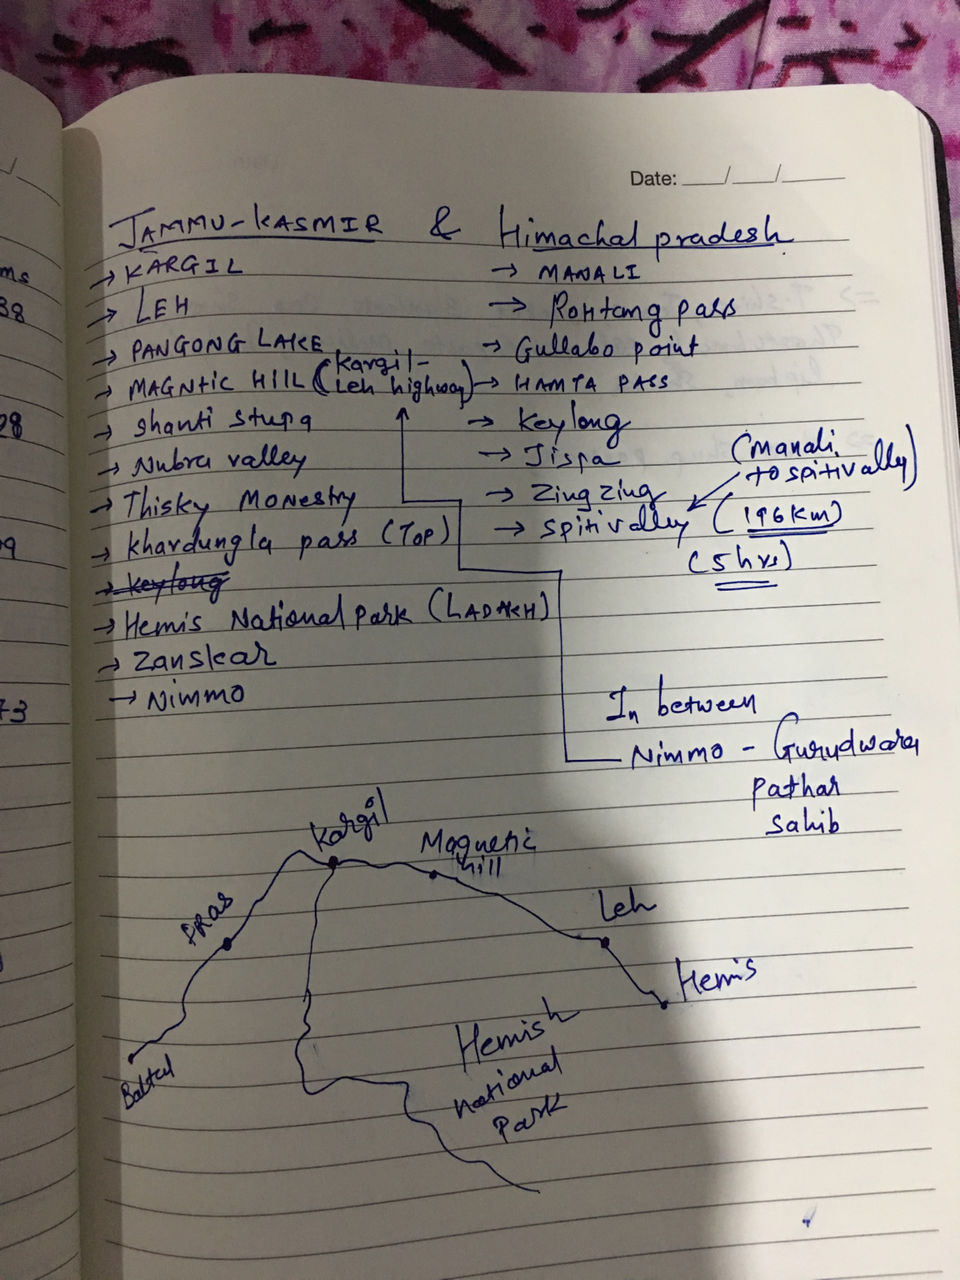 Date: __/__/____
JAMMU-KASMIR & Himachal pradesh
→ KARGIL
→ LEH
→ PANGONG LAKE
→ MAGNtic HIll (Kargil-
Leh highway)
→ Shanti Stupa
→ Nubra valley
→ Thisky Monestry
→ Khardungla pass (Top)
→ Keylong
→ Hemis National Park (LADAKH)
→ Zanskar
→ Nimmo
→ MANALI
→ Rohtang pass
→ Gullabo point
→ HAMTA PASS
→ Keylong
→ Jispa
→ Zing Zing
→ Spiti valley (196 Km)
(Manali
to spiti vally)
(5 hrs)
In between
Nimmo - Gurudwara
Pathar
Sahib
Kargil
Magnetic
hill
DRAS
Leh
Hemis
Baltal
Hemish
national
Park
ms
38
08
09
73